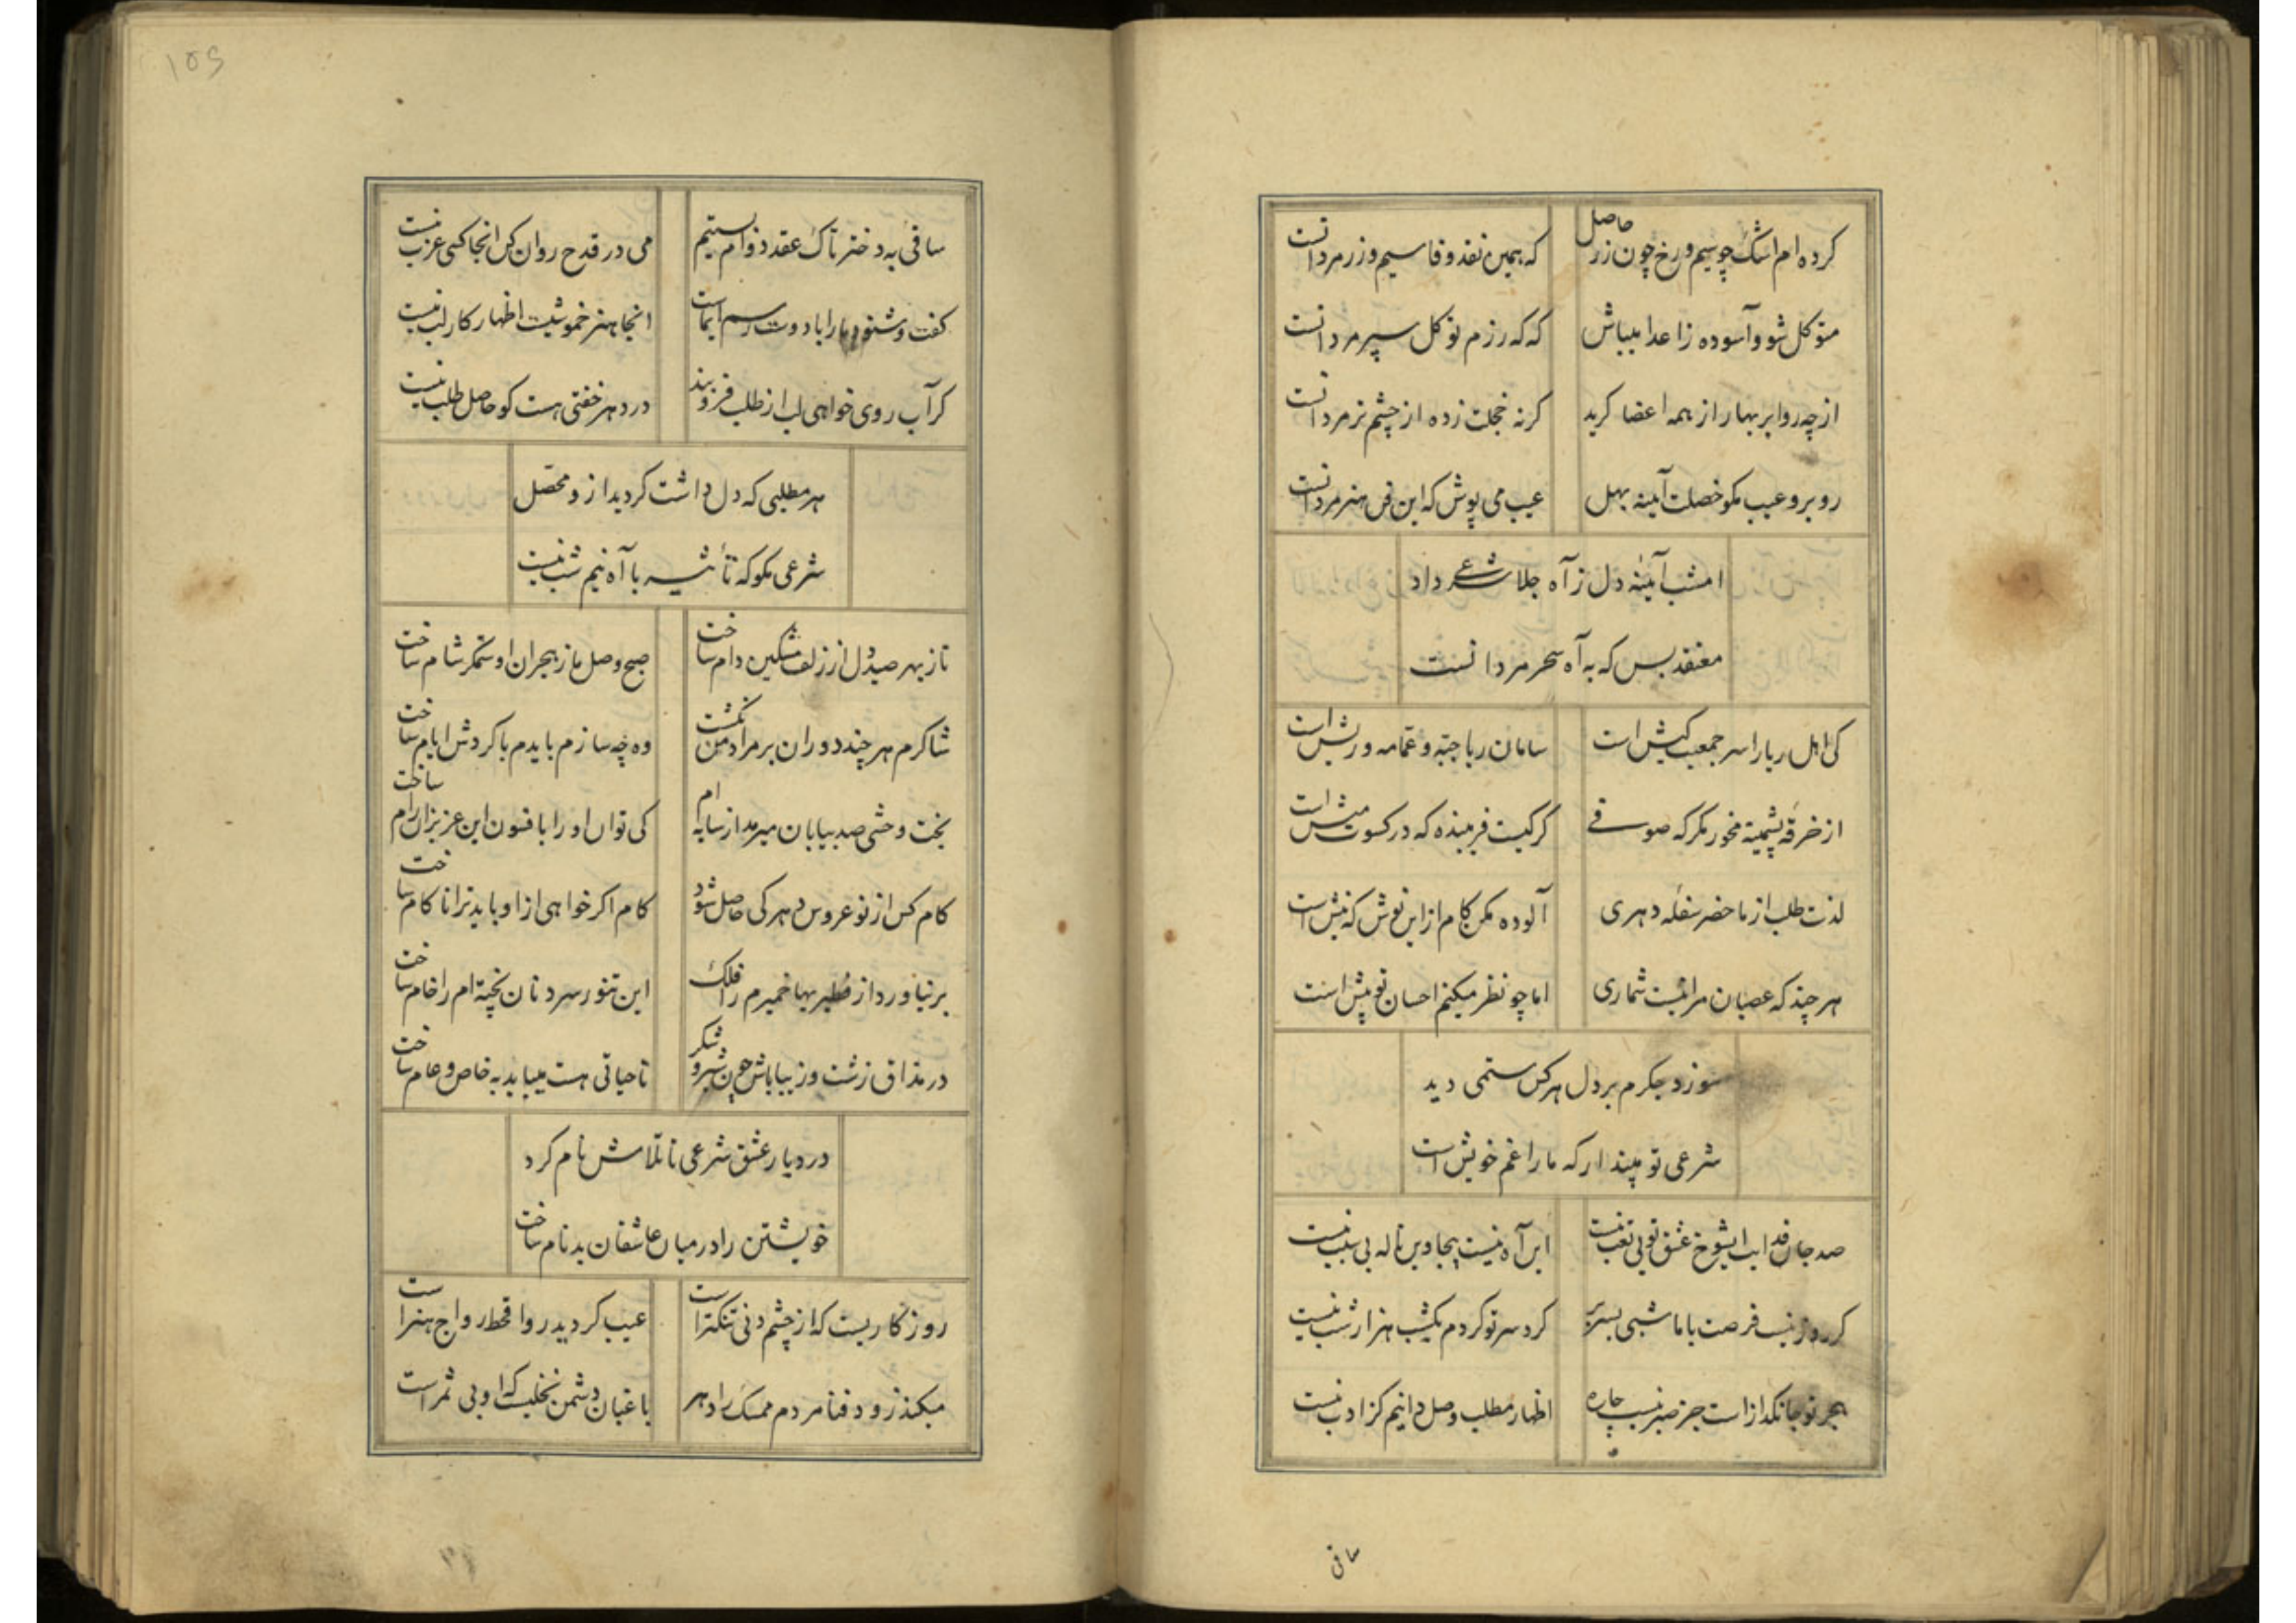 کرده ام اشک چو سیم و رخ چون زر حاصل
که همین نقد وفا سیم و زر مردانست
متوکل شو و آسوده ز اعدا میباش
که که رزم توکل سپر مردانست
از چه رو ابر بهار از همه اعضا کرید
کرنه خجلت زده از چشم تر مردانست
روبرو عیب مکو خصلت آینه بهل
عیب می پوش که این فن هنر مردانست
امشب آینه دل ز آه جلا شرعی داد
معتقد بس که به آه سحر مردانست
کی اهل ریا را سر جمعیت کیش است
سامان ریا جبه و عمامه و ریش است
از خرقه پشمینه مخور مکر که صوفی
کرکیست فریبنده که در کسوت میش است
لذت طلب از ماحضر سفله دهری
آلوده مکن کام از این نوش که نیش است
هر چند که عصیان مرا نیست شماری
اما چو نظر میکنم احسان تو بیش است
سوزد جکرم بر دل هر کس ستمی دید
شرعی تو مپندار که ما را غم خویش است
صد جان فدایت ای شوخ عشق تو بی تعب نیست
این آه نیست بیجا وین ناله بی سبب نیست
کر روز نیست فرصت با ما شبی بسر بر
کرد سر تو کردم یکشب هزار شب نیست
هجر تو جانکداز است جز صبر نیست چاره
اظهار مطلب وصل دانیم کز ادب نیست
ساقی
ساقی به دختر تاک عقد دوام بستیم
می در قدح روان کن اینجا کسی عزب نیست
کفت و شنود ما را با دوست رسم ایماست
اینجا هنر خموشیست اظهار کار لب نیست
کر آب روی خواهی لب از طلب فرو بند
در دهر خفتی هست کو حاصل طلب نیست
هر مطلبی که دل داشت کردید ازو محصل
شرعی مکو که تأثیر با آه نیم شب نیست
تا ز بهر صید دل از زلف مشکین دام ساخت
صبح وصل ما ز هجران او ستمکر شام ساخت
شاکرم هر چند دوران بر مراد من نکشت
وه چه سازم بایدم با کردش ایام ساخت
بخت وحشی صد بیابان میرمد از سایه ام
کی توان او را با فسون این عزیزان رام ساخت
کام کس از نو عروس دهر کی حاصل شود
کام اکر خواهی از او باید ترا ناکام ساخت
بر نیاورد از فطیریها خمیرم را فلک
این تنور سرد نان پخته ام را خام ساخت
در مذاق زشت و زیبا باش چون شیر و شکر
تا حیاتی هست میباید به خاص و عام ساخت
در دیار عشق شرعی تا تلاش نام کرد
خویشتن را در میان عاشقان بدنام ساخت
روزکاریست که از چشم دنی تنکتر است
عیب کردید روا قحط رواج هنر است
میکند زود فنا مردم ممسک را دهر
باغبان دشمن نخلیست که او بی ثمر است